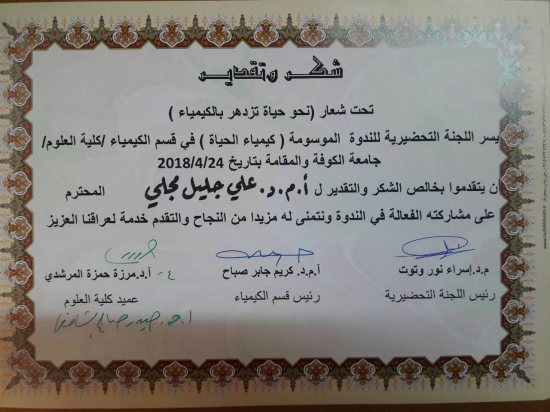 شكر وتقدير
تحت شعار (نحو حياة تزدهر بالكيمياء )
يسر اللجنة التحضيرية للندوة الموسومة ( كيمياء الحياة ) في قسم الكيمياء /كلية العلوم/
جامعة الكوفة والمقامة بتاريخ 2018/4/24
ان يتقدموا بخالص الشكر والتقدير ل أ.م.د.علي جليل مجلي المحترم
على مشاركته الفعالة في الندوة ونتمنى له مزيدا من النجاح والتقدم خدمة لعراقنا العزيز
م.د.إسراء نور وتوت أ.م.د. كريم جابر صباح أ.د.مرزة حمزة المرشدي
رئيس اللجنة التحضيرية رئيس قسم الكيمياء عميد كلية العلوم